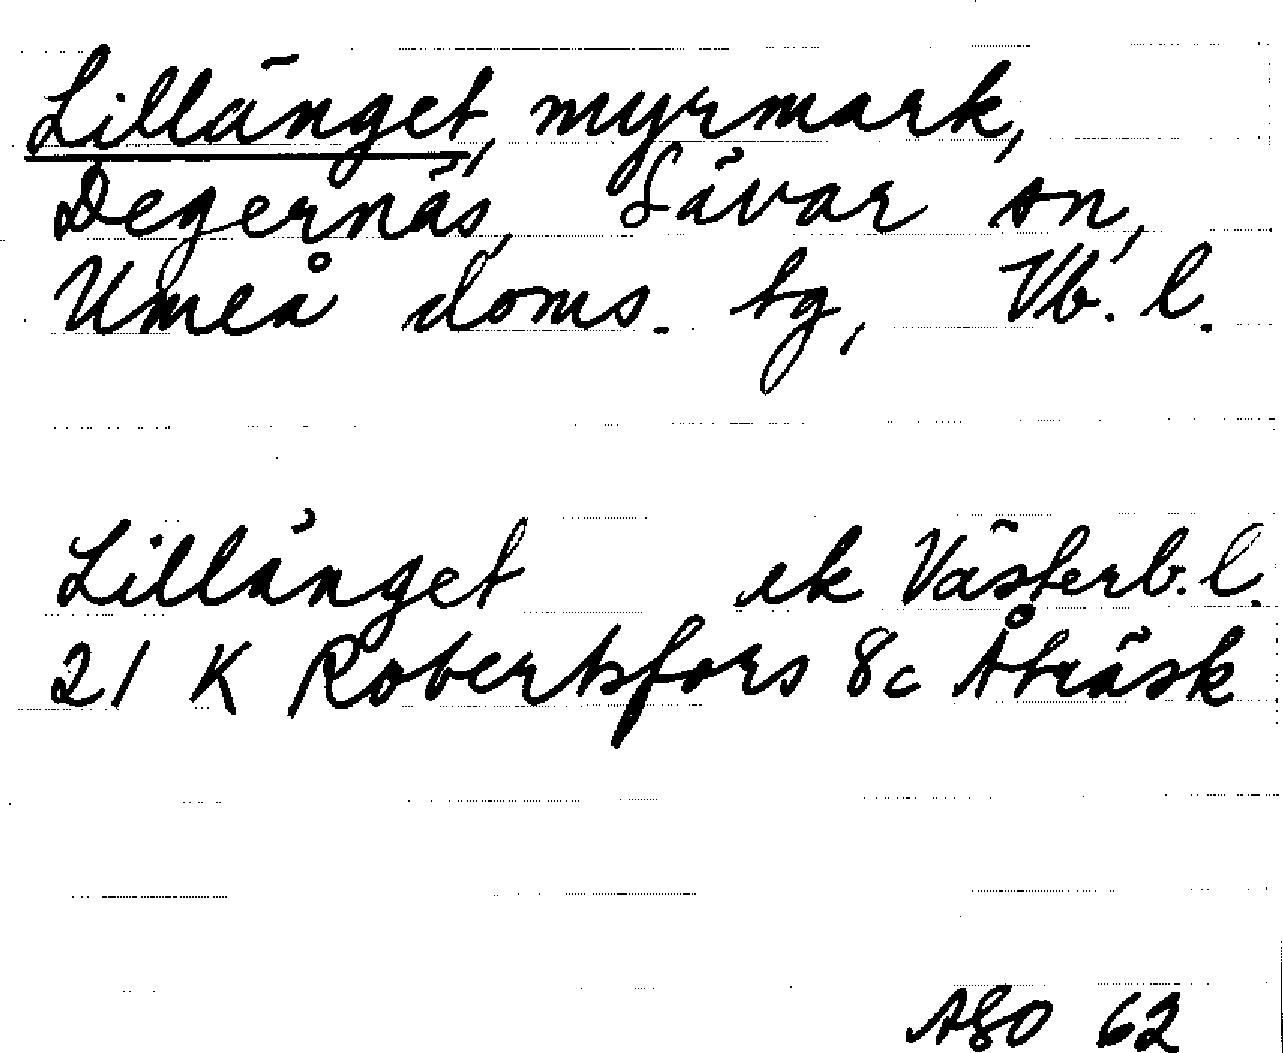 Lillänget, myrmark,
Degernäs, Sävar sn,
Umeå doms. tg, Vb. l.
Lillänget ek Västerb. l.
21 K Robertsfors 8c Åträsk
ASO 62